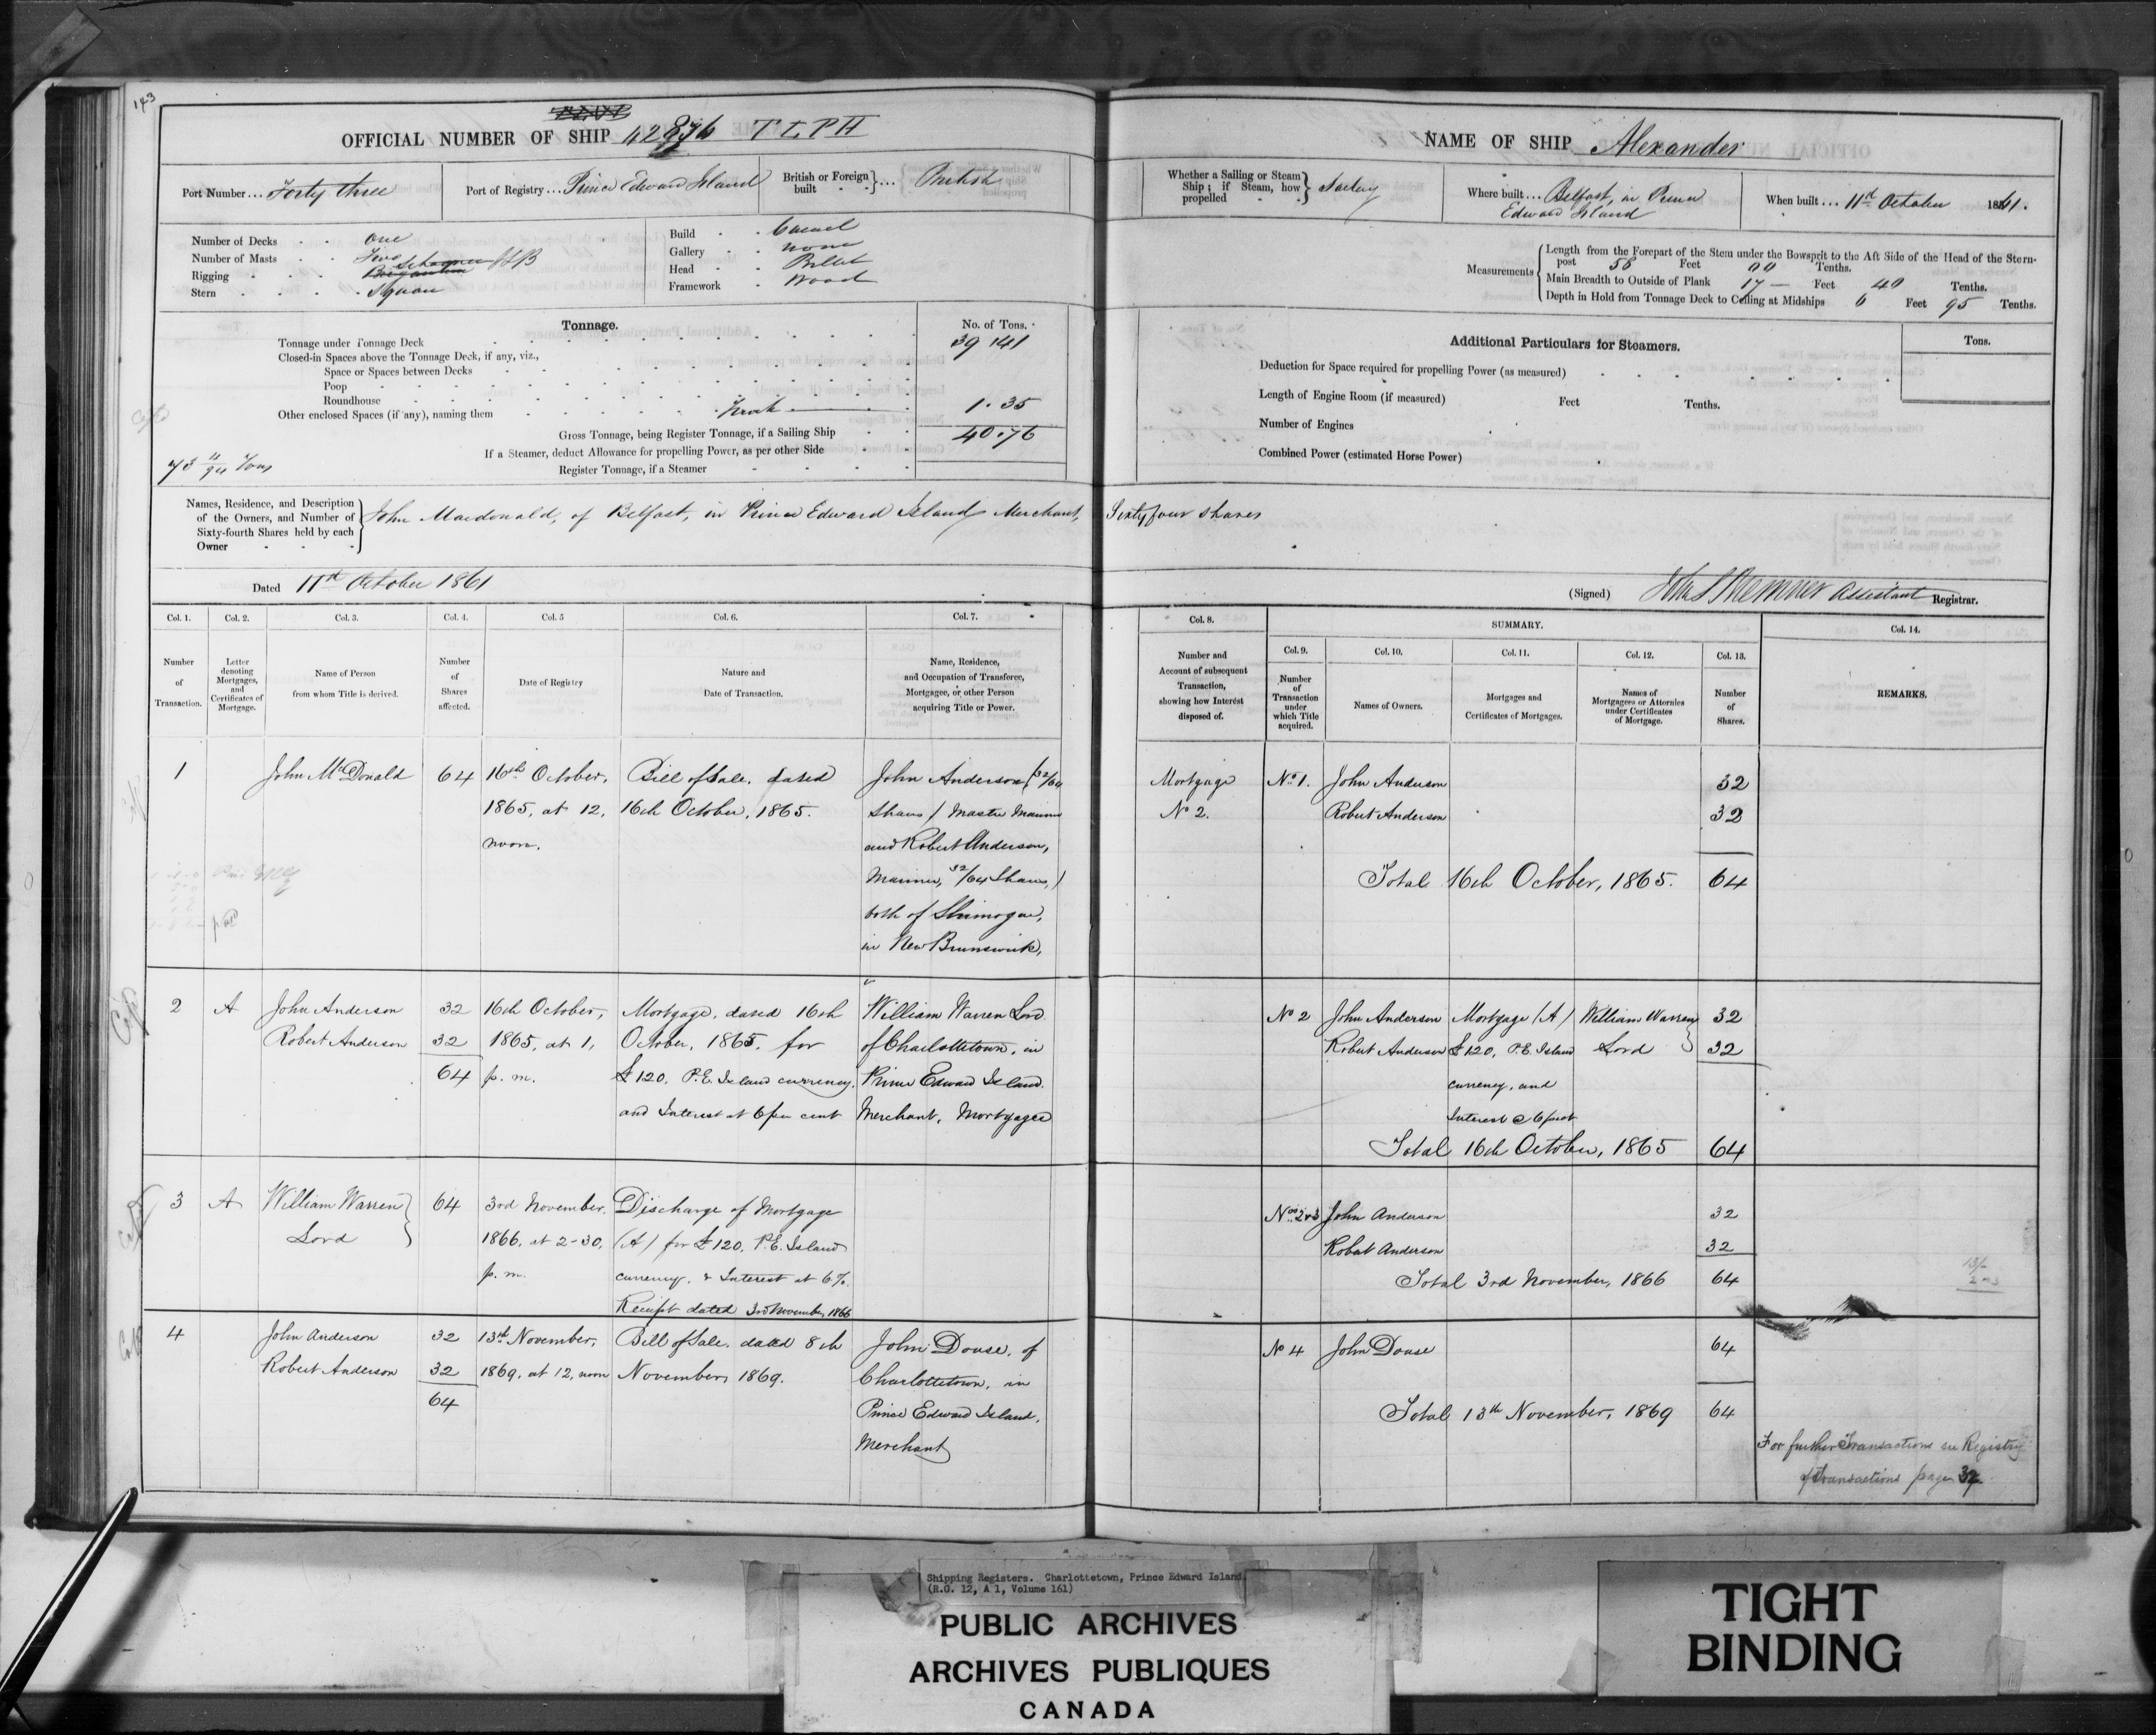 143
OFFICIAL NUMBER OF SHIP 42876 T L P H
Port Number... Forty three
Port of Registry... Prince Edward Island
British or Foreign built } ... British
Number of Decks One
Number of Masts Two
Rigging Schooner
Brigantine
Stern Square
Build Carvel
Gallery None
Head Billet
Framework Wood
Tonnage.
No. of Tons.
Tonnage under Tonnage Deck 39 41
Closed-in Spaces above the Tonnage Deck, if any, viz.,
Space or Spaces between Decks
Poop
Roundhouse
Other enclosed Spaces (if any), naming them Trunk 1.35
Gross Tonnage, being Register Tonnage, if a Sailing Ship 40.76
If a Steamer, deduct Allowance for propelling Power, as per other Side
Register Tonnage, if a Steamer
Tons
Names, Residence, and Description of the Owners, and Number of Sixty-fourth Shares held by each Owner } John Macdonald, of Belfast, in Prince Edward Island, Merchant, Sixty four Shares
Dated 11th October 1861
NAME OF SHIP Alexander
Whether a Sailing or Steam Ship; if Steam, how propelled } Sailing
Where built... Belfast, in Prince
Edward Island
When built... 11th October 1861.
Measurements
Length from the Forepart of the Stem under the Bowsprit to the Aft Side of the Head of the Stern-
post 58 Feet 00 Tenths.
Main Breadth to Outside of Plank 17 Feet 40 Tenths.
Depth in Hold from Tonnage Deck to Ceiling at Midships 6 Feet 95 Tenths.
Additional Particulars for Steamers.
Tons.
Deduction for Space required for propelling Power (as measured)
Length of Engine Room (if measured) Feet Tenths.
Number of Engines
Combined Power (estimated Horse Power)
(Signed) Assistant Registrar.
Col. 1. Col. 2. Col. 3. Col. 4. Col. 5 Col. 6. Col. 7.
Number of Transaction.
Letter denoting Mortgages, and Certificates of Mortgage.
Name of Person from whom Title is derived.
Number of Shares affected.
Date of Registry
Nature and Date of Transaction.
Name, Residence, and Occupation of Transferee, Mortgagee, or other Person acquiring Title or Power.
Col. 8.
Number and Account of subsequent Transaction, showing how Interest disposed of.
SUMMARY.
Col. 9. Col. 10. Col. 11. Col. 12. Col. 13.
Number of Transaction under which Title acquired.
Names of Owners.
Mortgages and Certificates of Mortgages.
Names of Mortgagees or Attornies under Certificates of Mortgage.
Number of Shares.
Col. 14.
REMARKS.
1 John McDonald 64 16th October, Bill of Sale, dated John Anderson (32/64
1865, at 12, 16th October, 1865. Shares) Master Mariner
noon. and Robert Anderson,
Mariner, 32/64 Shares,)
both of Shimogue,
in New Brunswick,
Mortgage No. 1. John Anderson 32
No 2. Robert Anderson 32
Total 16th October, 1865. 64
2 A John Anderson 32 16th October, Mortgage, dated 16th William Warren Lord
Robert Anderson 32 1865, at 1, October, 1865, for of Charlottetown, in
64 p.m. £120, P.E. Island currency, Prince Edward Island
and Interest at 6 per cent Merchant, Mortgagee
No 2 John Anderson Mortgage (A) William Warren 32
Robert Anderson £120, P.E. Island Lord 32
currency, and
Interest @ 6 pr ct
Total 16th October, 1865 64
3 A William Warren 64 3rd November, Discharge of Mortgage
Lord 1866, at 2-30, (A) for £120, P.E. Island
p.m. currency, & Interest at 6%.
Receipt dated 3rd November, 1866
Nos 2&3 John Anderson 32
Robert Anderson 32
Total 3rd November, 1866 64
4 John Anderson 32 13th November, Bill of Sale, dated 8th John Douse, of
Robert Anderson 32 1869, at 12, noon November, 1869. Charlottetown, in
64 Prince Edward Island,
Merchant
No 4 John Douse 64
Total 13th November, 1869 64
For further Transactions see Registry
of Transactions page 32
Shipping Registers. Charlottetown, Prince Edward Island
(R.G. 12, A 1, Volume 161)
PUBLIC ARCHIVES
ARCHIVES PUBLIQUES
CANADA
TIGHT
BINDING